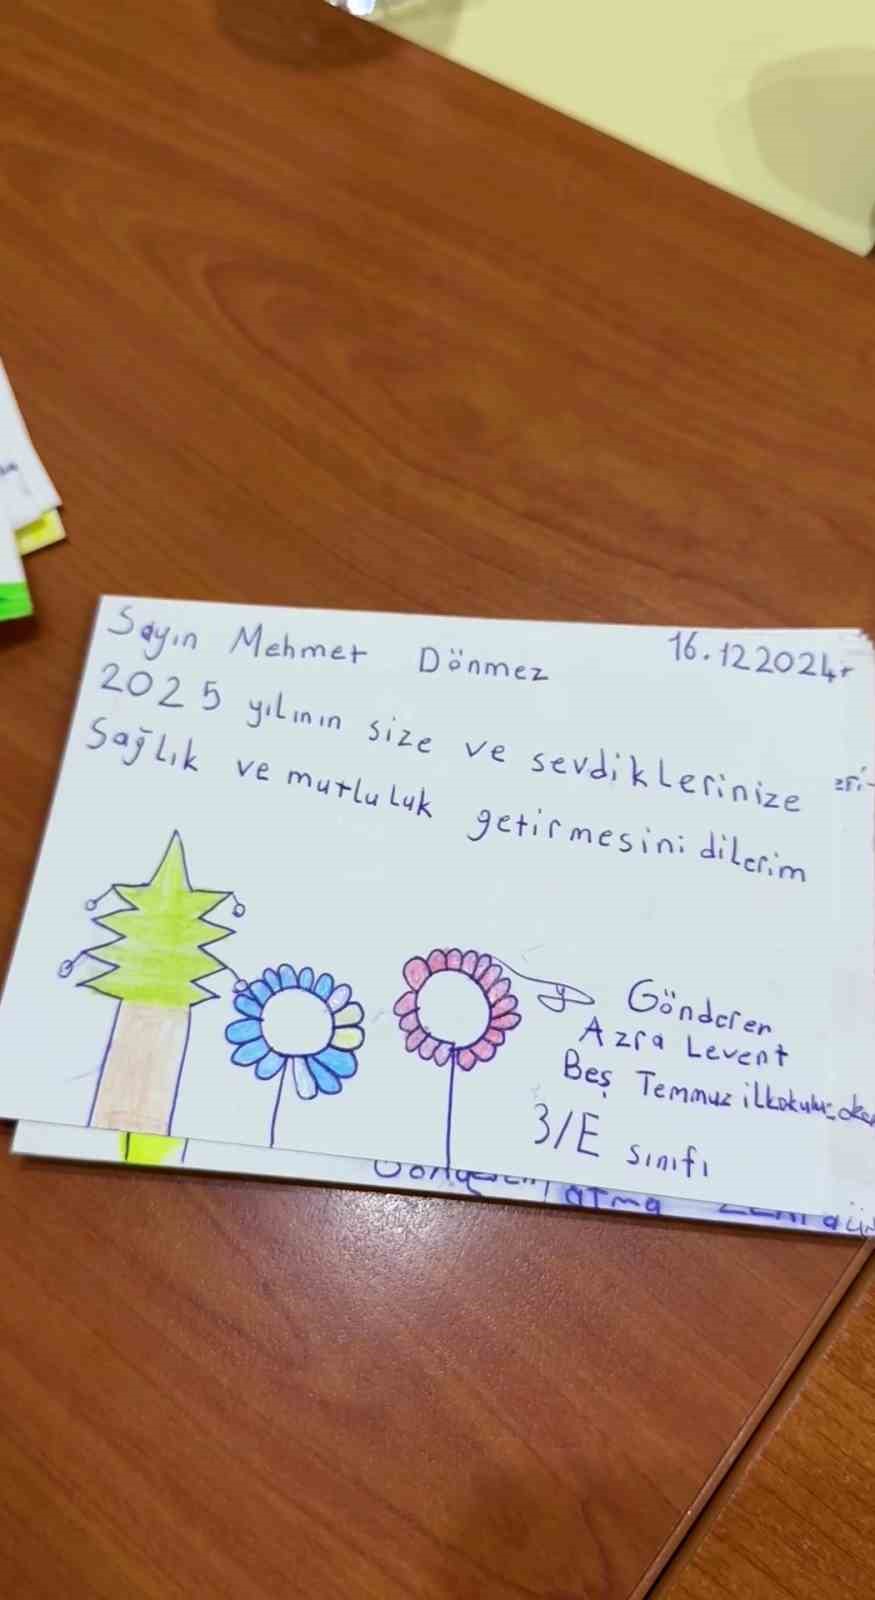 Sayın Mehmet Dönmez 16.12 2024
2025 yılının size ve sevdiklerinize
Sağlık ve mutluluk getirmesini dilerim
Gönderen
Azra Levent
Beş Temmuz ilkokulu
3/E sınıfı